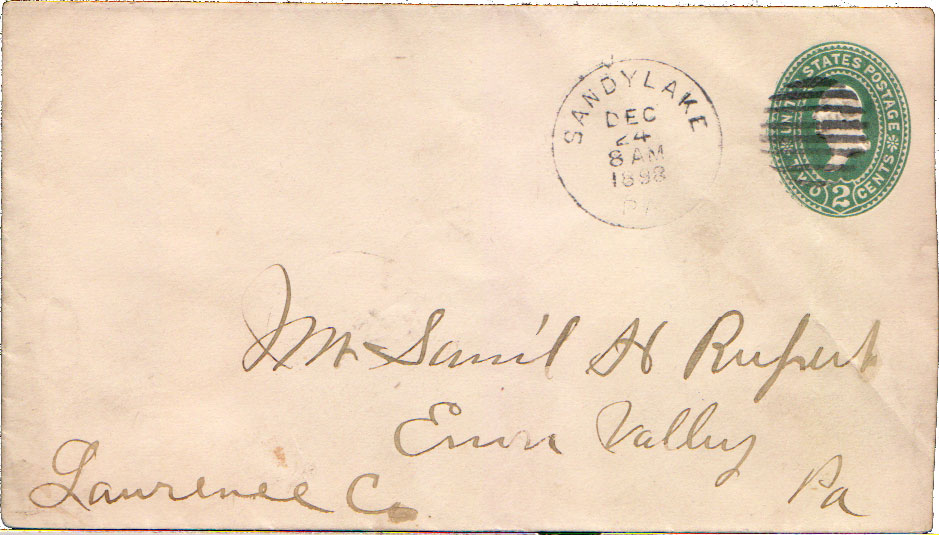 SANDYLAKE
DEC
24
8 AM
1898
PA
UNITED STATES POSTAGE
TWO 2 CENTS
Mr Sam'l H Rupert
Enon Valley
Lawrence Co Pa